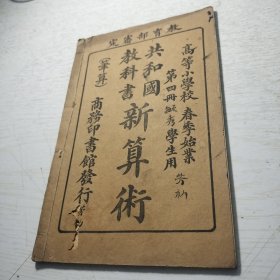 教育部審定
高等小學校 春季始業
第四冊 學生用
共和國
教科書 新算術
(筆算)
商務印書館發行